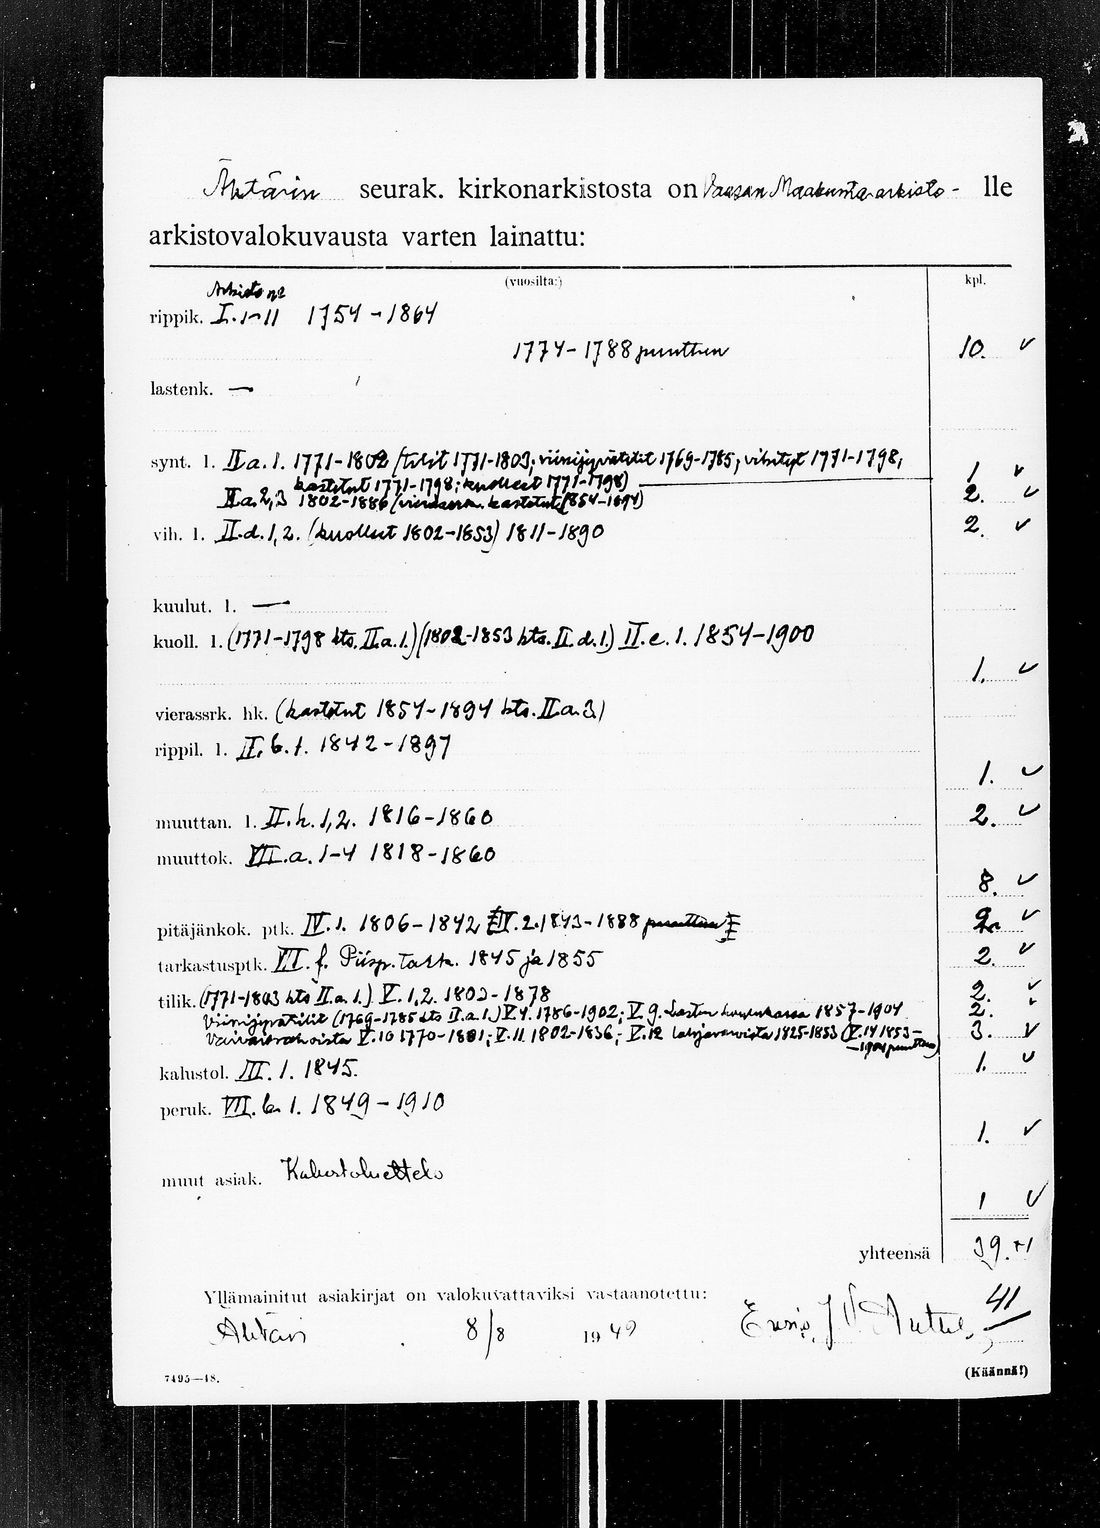 Ähtärin seurak. kirkonarkistosta on Vaasan Maakunta-arkisto- lle
arkistovalokuvausta varten lainattu:
(vuosilta:) kpl.
Arkisto n:o
rippik. I. 1-11 1754-1864
1774-1788 puuttuu 10. v
lastenk. —
synt. l. II a. 1. 1771-1802 (tilit 1771-1803; viinijyvätilit 1769-1785; vihityt 1771-1798,
kastetut 1771-1798; kuolleet 1771-1798) 1 v
II a. 2, 3 1802-1886 (vierasseurak. kastetut 1854-1894) 2. v
vih. l. II. d. 1, 2. (kuolleet 1802-1853) 1811-1890 2. v
kuulut. l. —
kuoll. l. (1771-1798 kts. II.a. 1.) (1802-1853 kts. II. d. 1.) II. e. 1. 1854-1900
1. v
vierassrk. hk. (kastetut 1854-1894 kts. II a. 3)
rippil. l. II. b. 1. 1842-1897
1. v
muuttan. l. II. h. 1, 2. 1816-1860 2. v
muuttok. VII. a. 1-4 1818-1860
8. v
pitäjänkok. ptk. IV. 1. 1806-1842 IV. 2. 1843-1888 puuttuu 2. v
tarkastusptk. VI. f. Piisp. tark. 1845 ja 1855 2. v
tilik. (1771-1803 kts II.a. 1.) V. 1, 2. 1802-1878 2. v
Viinijyvätilit (1769-1785 kts II.a. 1.) V. 4. 1786-1902; V. 9. Lasten koulukassa 1857-1904 2. v
Vaivaisrahoista V. 10 1770-1801; V. 11 1802-1836; V. 12 lahjavaroista 1825-1853 (V. 14 1853- 3. v
-1904 puuttuu)
kalustol. III. 1. 1845. 1. v
peruk. VII. b. 1. 1849-1910
1. v
muut asiak. Kalustoluettelo
1 v
yhteensä 39. +1
Yllämainitut asiakirjat on valokuvattaviksi vastaanotettu: 41
Ähtäri 8/8 1949
7495—48. (Käännä!)